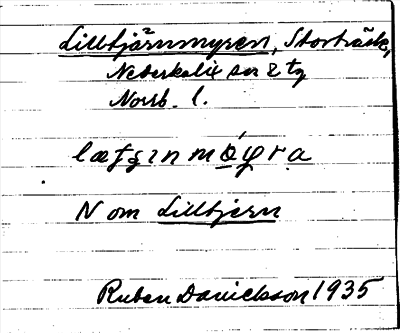 Lilltjärnmyren, Storträsk,
Nederkalix sn & tg
Norrb. l.
N om Lilltjern
Ruben Danielsson 1935